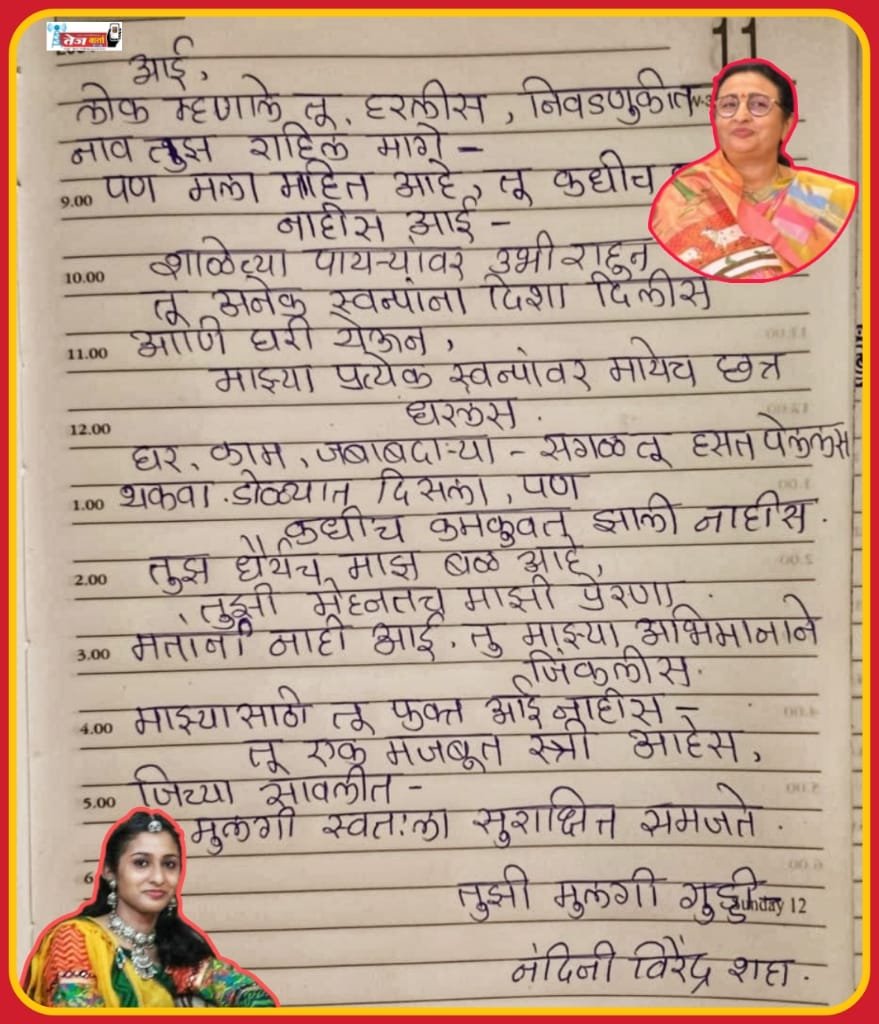 तेज वार्ता
11
आई,
लोक म्हणाले तू, हरलीस, निवडणुकीत
नाव तुझ राहिलं मागे -
9.00 पण मला माहित आहे, तू कधीच
नाहीस आई -
10.00 शाळेच्या पायऱ्यांवर उभी राहून
तू अनेक स्वप्नांना दिशा दिलीस
11.00 आणि घरी येऊन,
माझ्या प्रत्येक स्वप्नांवर मायेच छत्र
धरलस.
12.00
घर, काम, जबाबदाऱ्या - सगळ तू हसत पेललस
1.00 थकवा डोळ्यात दिसला, पण
कधीच कमकुवत झाली नाहीस.
2.00 तुझ धैर्यच माझ बळ आहे,
तुझी मेहनतच माझी प्रेरणा.
3.00 मतांनी नाही आई, तु माझ्या अभिमानाने
जिंकलीस.
4.00 माझ्यासाठी तू फक्त आई नाहीस -
तू एक मजबूत स्त्री आहेस,
5.00 जिच्या सावलीत -
मुलगी स्वतःला सुरक्षित समजते.
6
तुझी मुलगी गुड्डी
Sunday 12
नंदिनी विरेंद्र शहा.